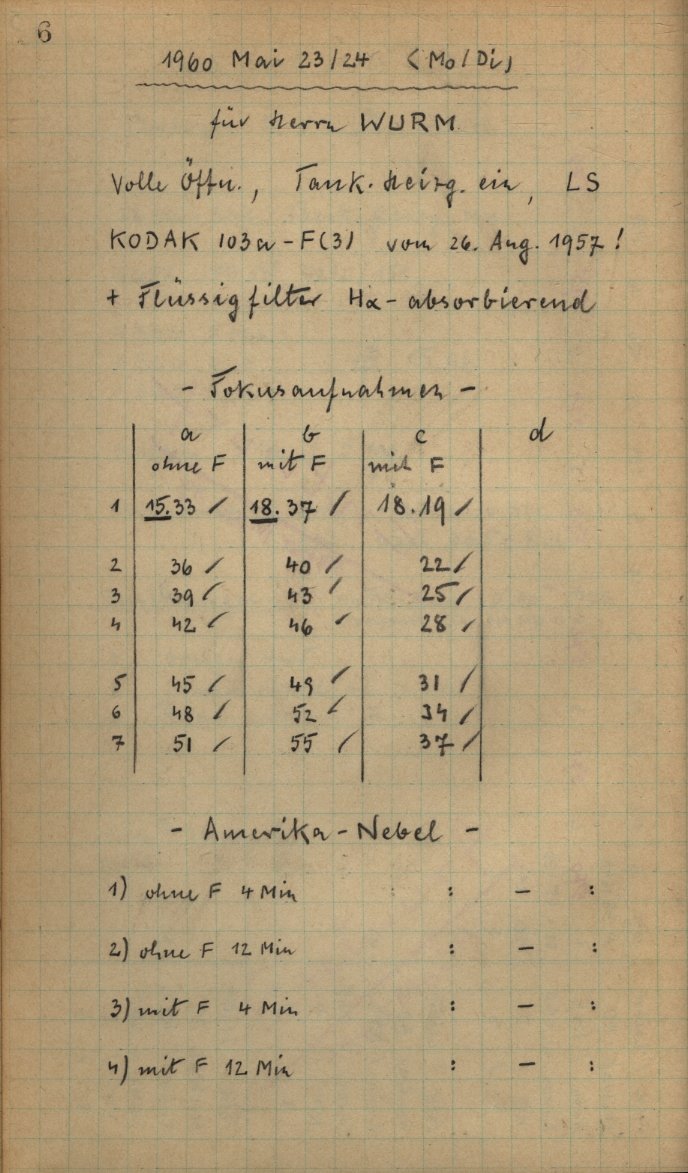 6
1960 Mai 23/24 (Mo/Di)
für Herrn WURM
Volle Öffn., Tank-Heizg. ein, LS
KODAK 103a-F(3) vom 26. Aug. 1957!
+ Flüssigfilter Hα-absorbierend
- Fokusaufnahmen -
a b c d
ohne F mit F mit F
1 15.33 ✓ 18.37 ✓ 18.19 ✓
2 36 ✓ 40 ✓ 22 ✓
3 39 ✓ 43 ✓ 25 ✓
4 42 ✓ 46 ✓ 28 ✓
5 45 ✓ 49 ✓ 31 ✓
6 48 ✓ 52 ✓ 34 ✓
7 51 ✓ 55 ✓ 37 ✓
- Amerika-Nebel -
1) ohne F 4 Min : — :
2) ohne F 12 Min : — :
3) mit F 4 Min : — :
4) mit F 12 Min : — :